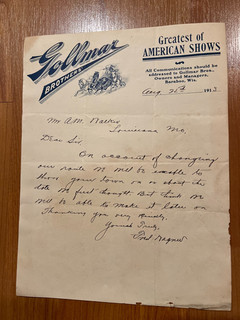 Gollmar
BROTHERS
Greatest of
AMERICAN SHOWS
All Communications should be
addressed to Gollmar Bros.,
Owners and Managers,
Baraboo, Wis.
Aug 25th 1913
Mr A.M.
Louisiana Mo.
Dear Sir.
On account of changing
our route I will be unable to
show your town on or about the
date I first thought But think I
will be able to make it later on
Thanking you very kindly.
Yours Truly,
Fred